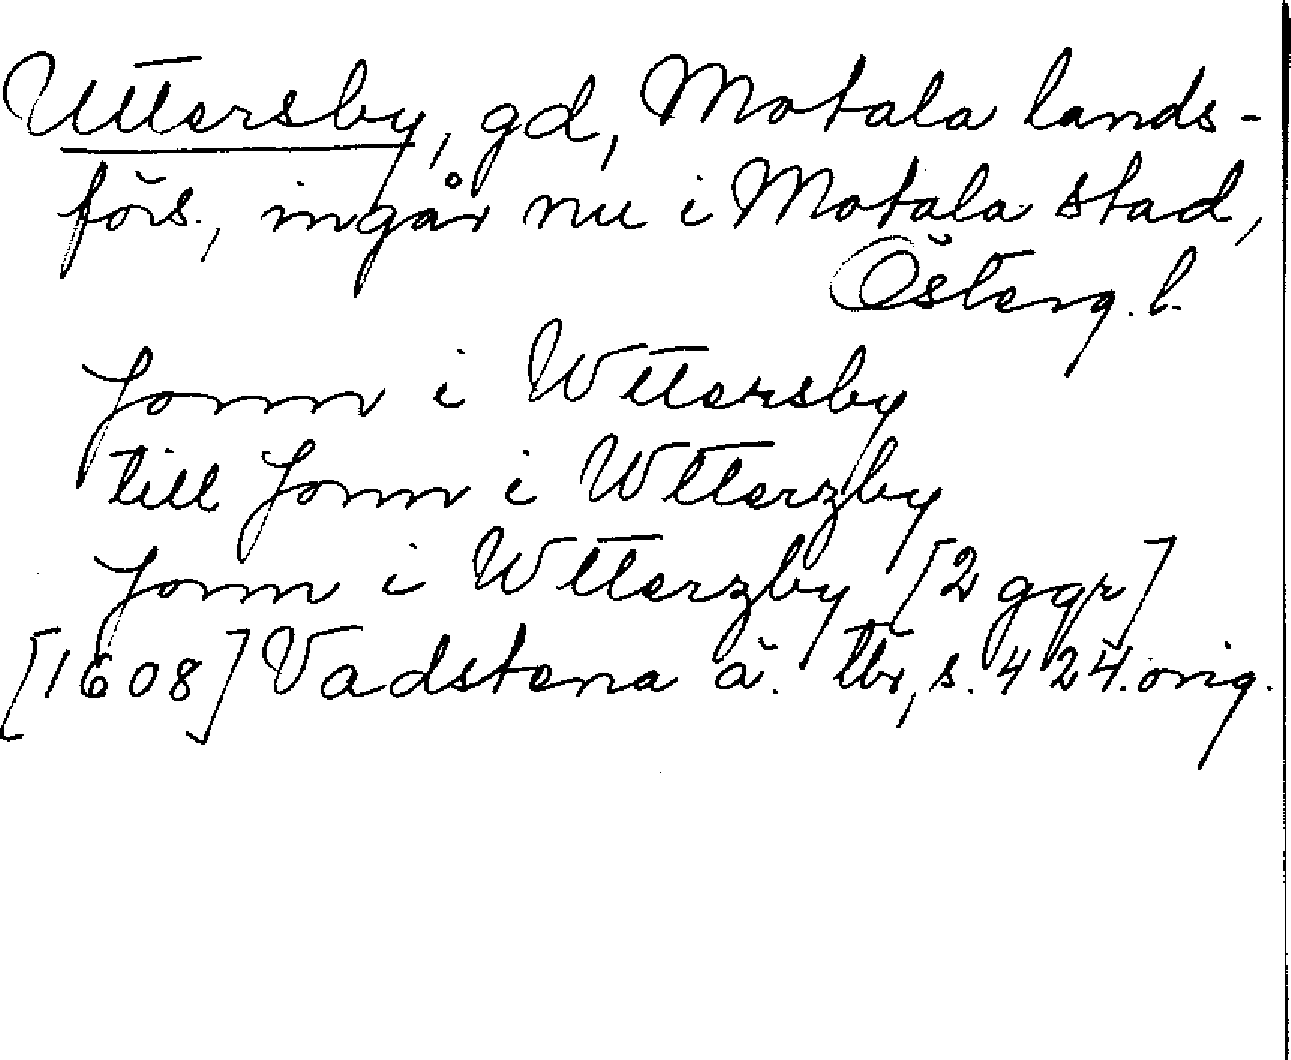 Uttersby, gd, Motala lands-
förs., ingår nu i Motala stad,
Österg. l.
Jonn i Wttersby
till Jonn i Wtterzby
Jonn i Wtterzby [2 ggr]
[1608] Vadstena ä. tbr, s. 424. orig.